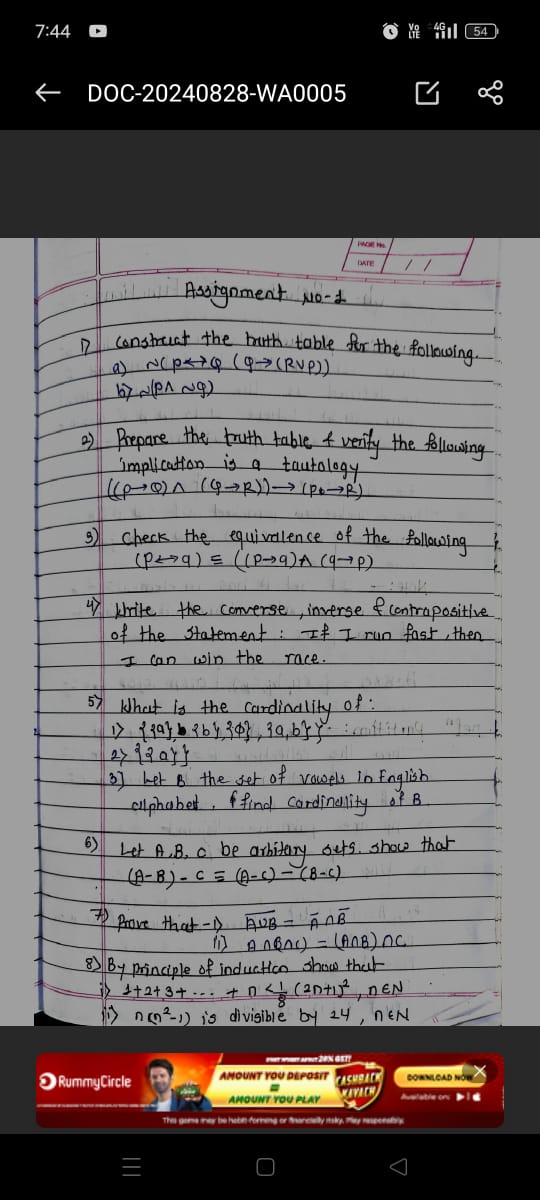 7:44
Vo LTE 4G 54
DOC-20240828-WA0005
PAGE No.
DATE / /
Assignment No-1
1) Construct the truth table for the following.
a) ~(p↔Q (q→(RVP))
b) ~(p∧ ~q)
2) Prepare the truth table & verify the following
implication is a tautology
((p→Q)∧ (Q→R))→ (p→R)
3) Check the equivalence of the following
(p↔q) ≡ ((p→q)∧ (q→p)
4) Write the converse, inverse & contrapositive
of the statement : If I run fast, then
I can win the race.
5) What is the cardinality of :
1) {{a}, {b}, {ϕ}, {a,b}}
2) {{a}}
3] Let B the set of vowels in English
alphabet, find cardinality of B
6) Let A,B, C be arbitary sets. show that
(A-B)-C ≡ (A-C)-(B-C)
7) Prove that -i) A̅U̅B̅ = A̅ ∩ B̅
ii) A∩(B∩C) = (A∩B)∩C
8) By principle of induction show that
i) 1+2+3+ ... + n < 1/8 (2n+1)², n∈N
ii) n(n²-1) is divisible by 24, n∈N
RummyCircle
20% GST!
AMOUNT YOU DEPOSIT
=
AMOUNT YOU PLAY
CASHBACK
KAVACH
DOWNLOAD NOW
Available on:
This game may be habit-forming or financially risky. Play responsibly.